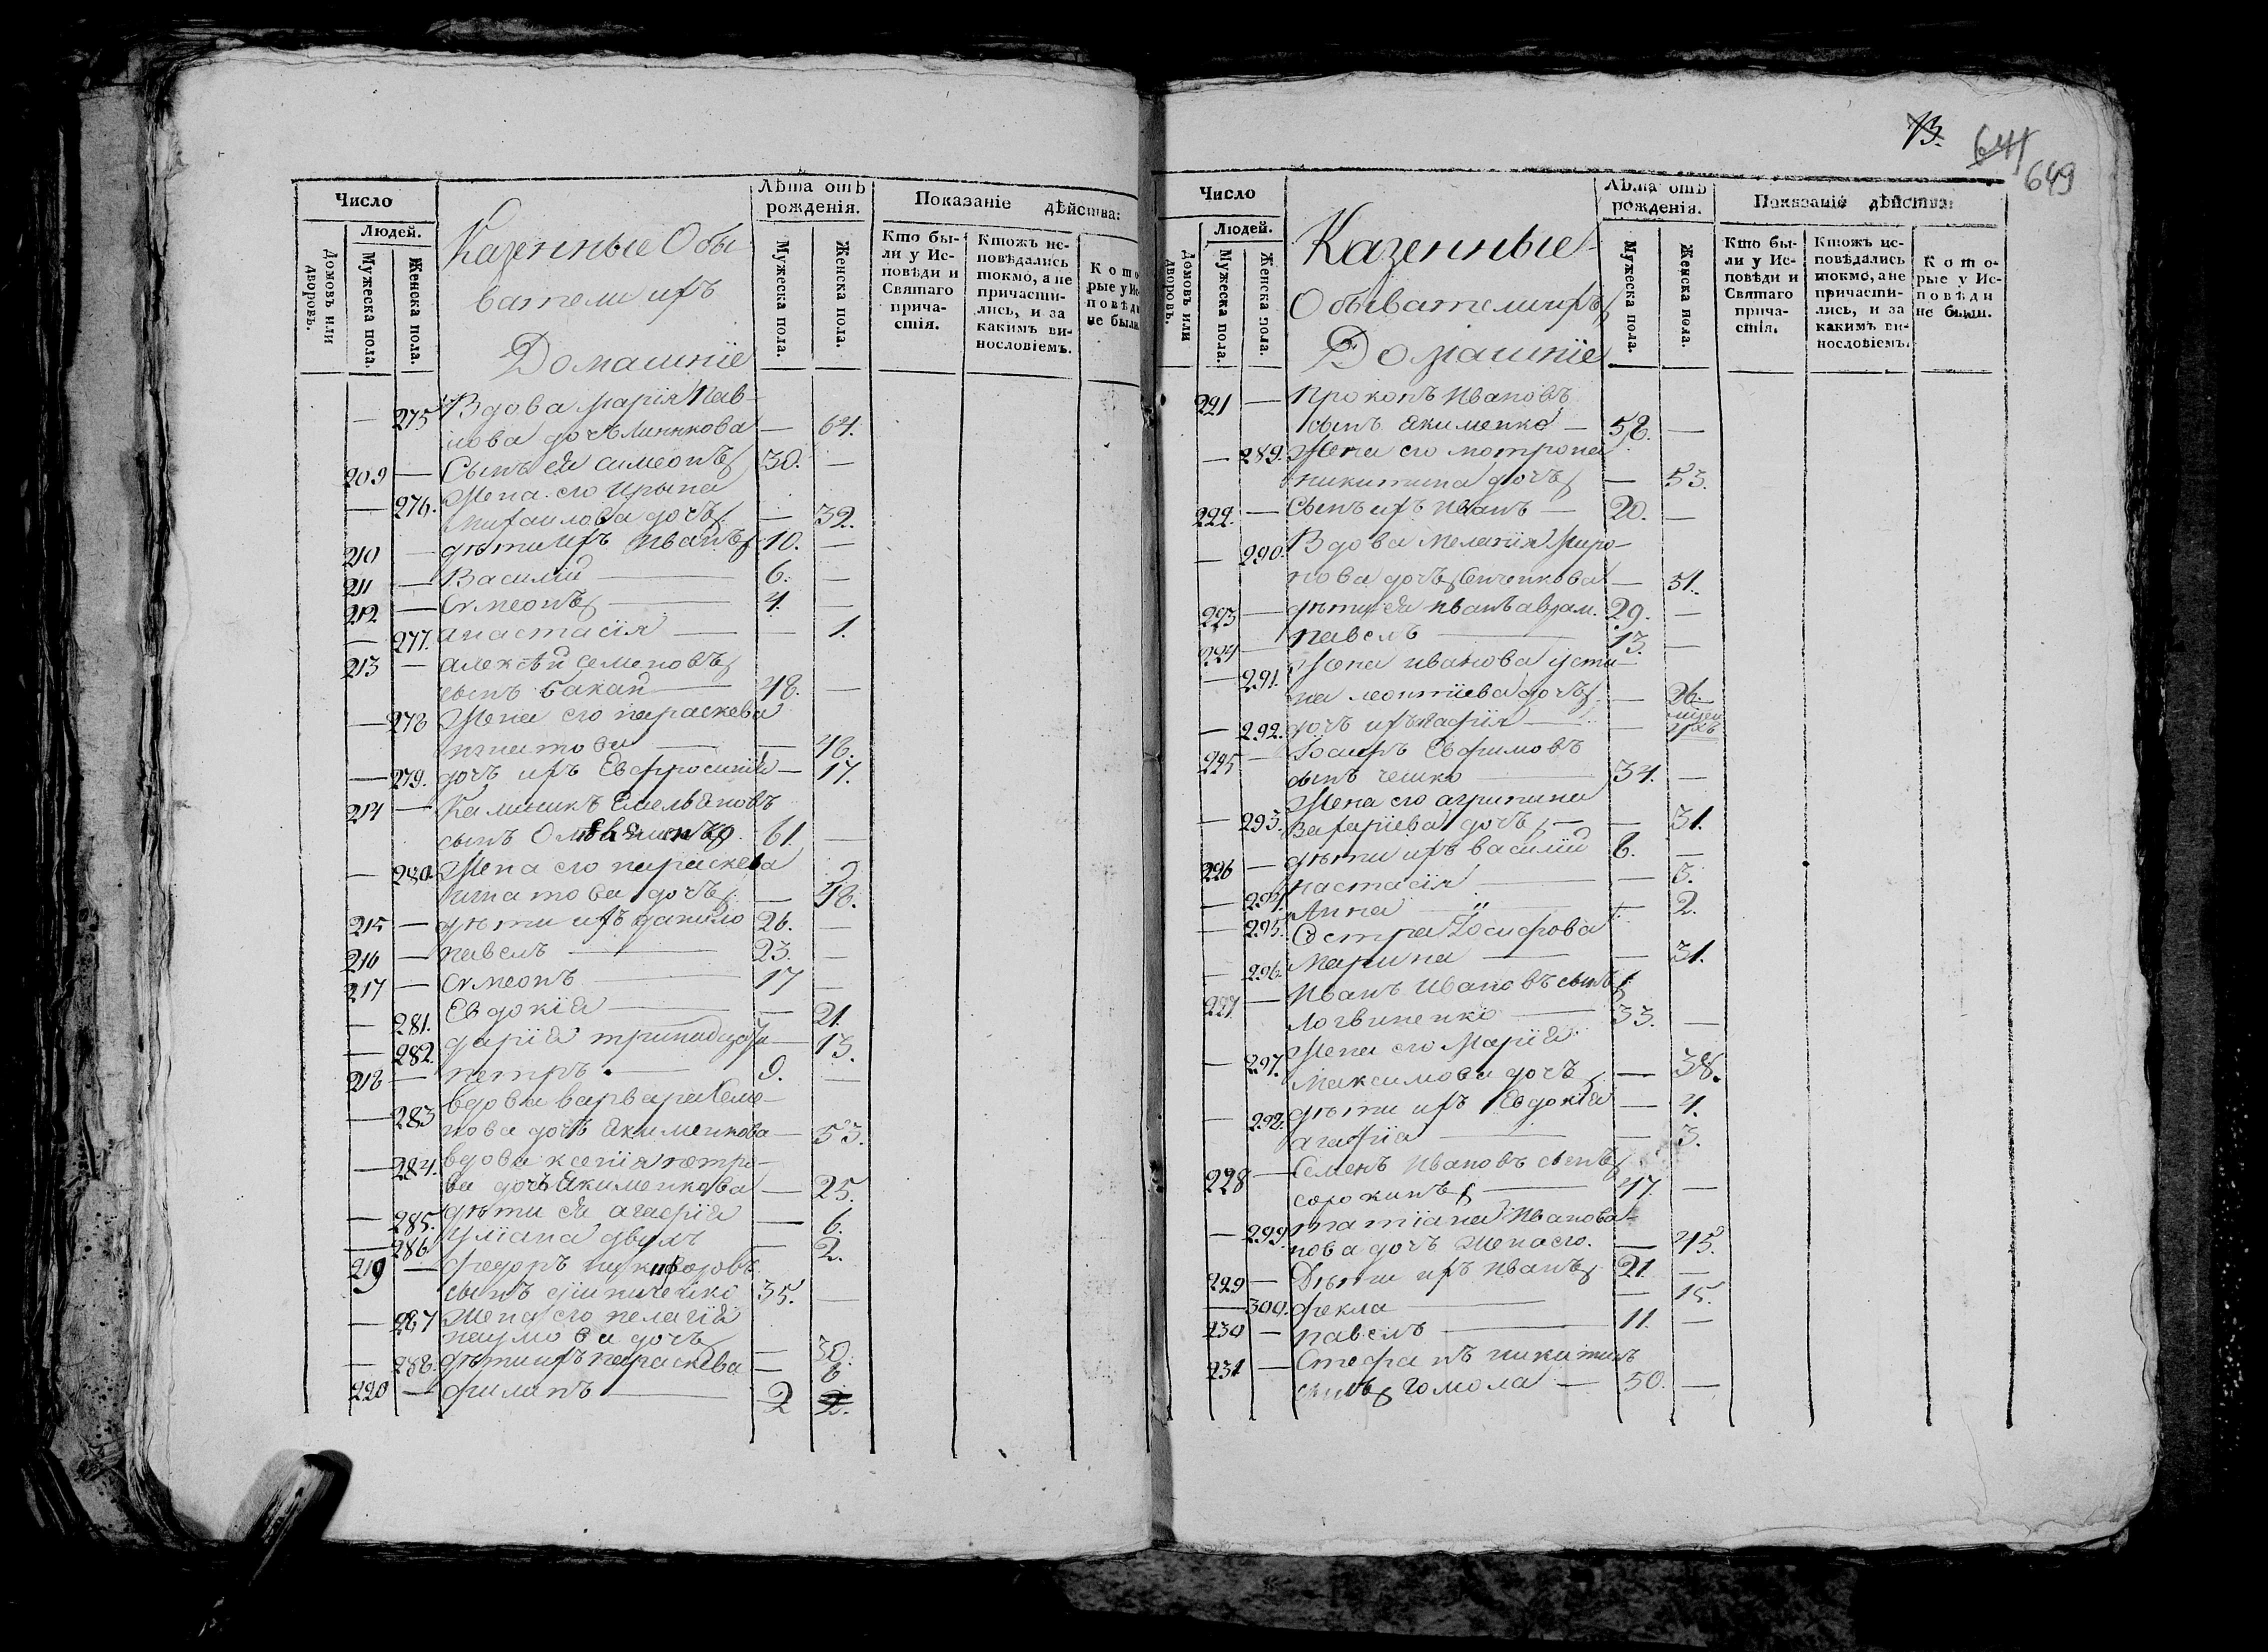 13.
641
649
Число
Людей.
Домовъ или дворовъ.
Мужеска пола.
Женска пола.
Казенные Обы
ватели ихъ
Домашніе
Лѣта отъ рожденія.
Мужеска пола.
Женска пола.
Показаніе дѣйства:
Кто бы-
ли у Ис-
повѣди и
Святаго
прича-
стія.
Ктожъ ис-
повѣдались
токмо, а не
причасти-
лись, и за
какимъ ви-
нословіемъ.
Кото
рые у Ис
повѣди
не были.
— 275 Вдова Марія Пав-
лова дочь Линникова — 64.
209 — Сынъ ея Симеонъ 30. —
— 276. Жена его Ирына
Михаилова дочь — 32.
210 — дѣти ихъ Иванъ 10. —
211 — Василій — 6. —
212 — Симеонъ — 4. —
— 277. анастасія — — 1.
213 — алексѣй семеновъ
сынъ бакай — 48. —
— 278 Жена его параскева
игнатова — — 48.
— 279. дочь ихъ Евфросинія — 17.
214 — Калиникъ Емельяновъ
сынъ 61. —
— 280 Жена его параскева
игнатова дочь — 48.
215 — дѣти ихъ данило 26. —
216 — павелъ — 23. —
217 — Симеонъ — 17 —
— 281. Евдокія — — 21.
— 282. дарія — 13.
218 — петръ — 9. —
— 283 вдова варвара Семе-
нова дочь Якименкова — 53.
— 284. вдова ксенія петро-
ва дочь Якименкова — 25.
— 285. дѣти ея агафія — 6.
— 286 Уліана двухъ — 2.
219 — федоръ никифоровъ
сынъ 35. —
— 287 Жена его пелагія
наумова дочь — 30.
— 288. дѣти ихъ параскева — 6
220 — филипъ — 2 2.
Число
Людей.
Домовъ или дворовъ.
Мужеска пола.
Женска пола.
Казенные
Обыватели ихъ
Домашніе
Лѣта отъ рожденія.
Мужеска пола.
Женска пола.
Показаніе дѣйства:
Кто бы-
ли у Ис-
повѣди и
Святаго
прича-
стія.
Ктожъ ис-
повѣдались
токмо, а не
причасти-
лись, и за
какимъ ви-
нословіемъ.
Кото-
рые у Ис-
повѣди
не были.
221 — Прокопъ Ивановъ
сынъ Якименко — 58. —
— 289. Жена его мотрона
никитина дочь — 53.
222. — Сынъ ихъ Иванъ — 20. —
— 290. Вдова Меланія Миро-
нова дочь — 51.
223 — дѣти ея Иванъ 29. —
224 — павелъ — 13. —
— 291. Жена иванова усти-
на леонтіева дочь — 26
— 292. дочь ихъ —
225 — Іосифъ Евфимовъ
сынъ чешко — 34. —
— 293. Жена его агрипина
Захаріева дочь — — 31.
226 — дѣти ихъ василій 6. —
— 294. настасія — — 5.
— 295. Анна — — 2.
— 296. Сестра Іосифова
Марина — — 31.
227 — Иванъ Ивановъ сынъ
Логвиненко — 33. —
— 297. Жена его Марія
Максимова дочь — 38.
— 298. дѣти ихъ Евдокія — 4.
агафія — — 3.
228 — Семенъ Ивановъ сынъ
сорокинъ — 47. —
— 299 татіана Иванова
нова дочь Жена его. — 45.
229 — Дѣти ихъ Иванъ 21. —
— 300. фекла — — 15.
230 — павелъ — 11. —
231 — Стефанъ никитинъ
сынъ гомола — 50. —